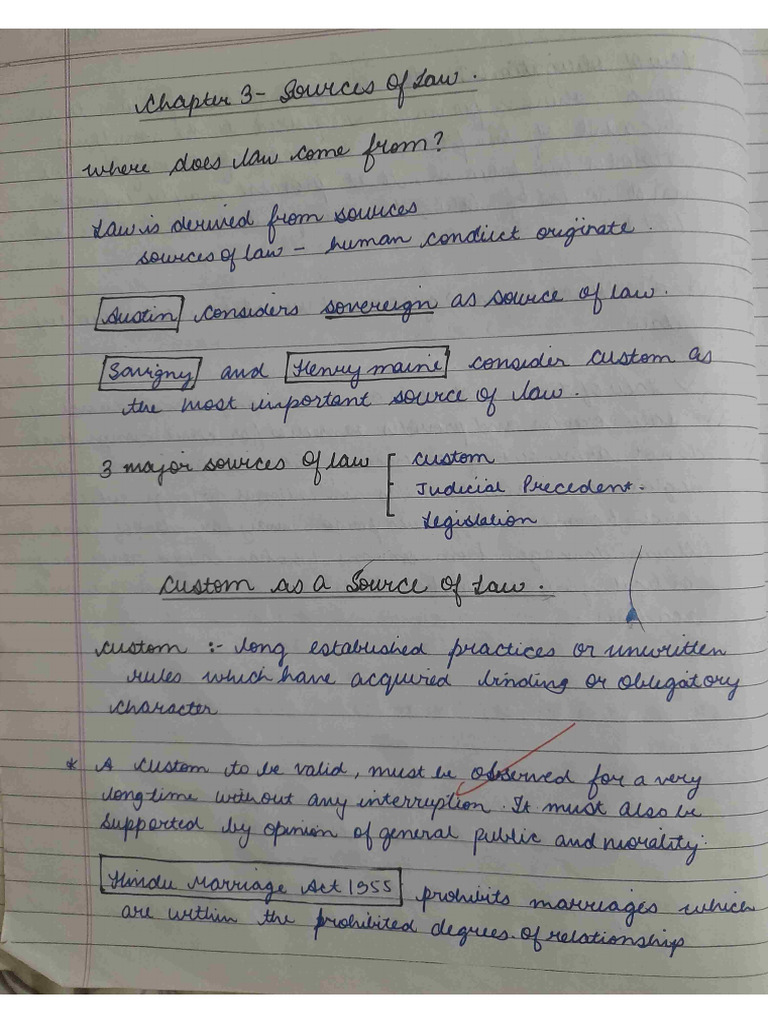 Chapter 3 - Sources Of Law.
where does law come from?
Law is derived from sources
sources of law - human conduct originate.
Austin considers sovereign as source of law.
Savigny and Henry maine consider custom as
the most important source of law.
3 major sources of law
custom
Judicial Precedent.
Legislation
Custom as a Source of Law.
custom :- long established practices or unwritten
rules which have acquired binding or obligatory
character
* A custom to be valid, must be observed for a very
long time without any interruption. It must also be
supported by opinion of general public and morality.
Hindu Marriage Act 1955 prohibits marriages which
are within the prohibited degrees of relationship